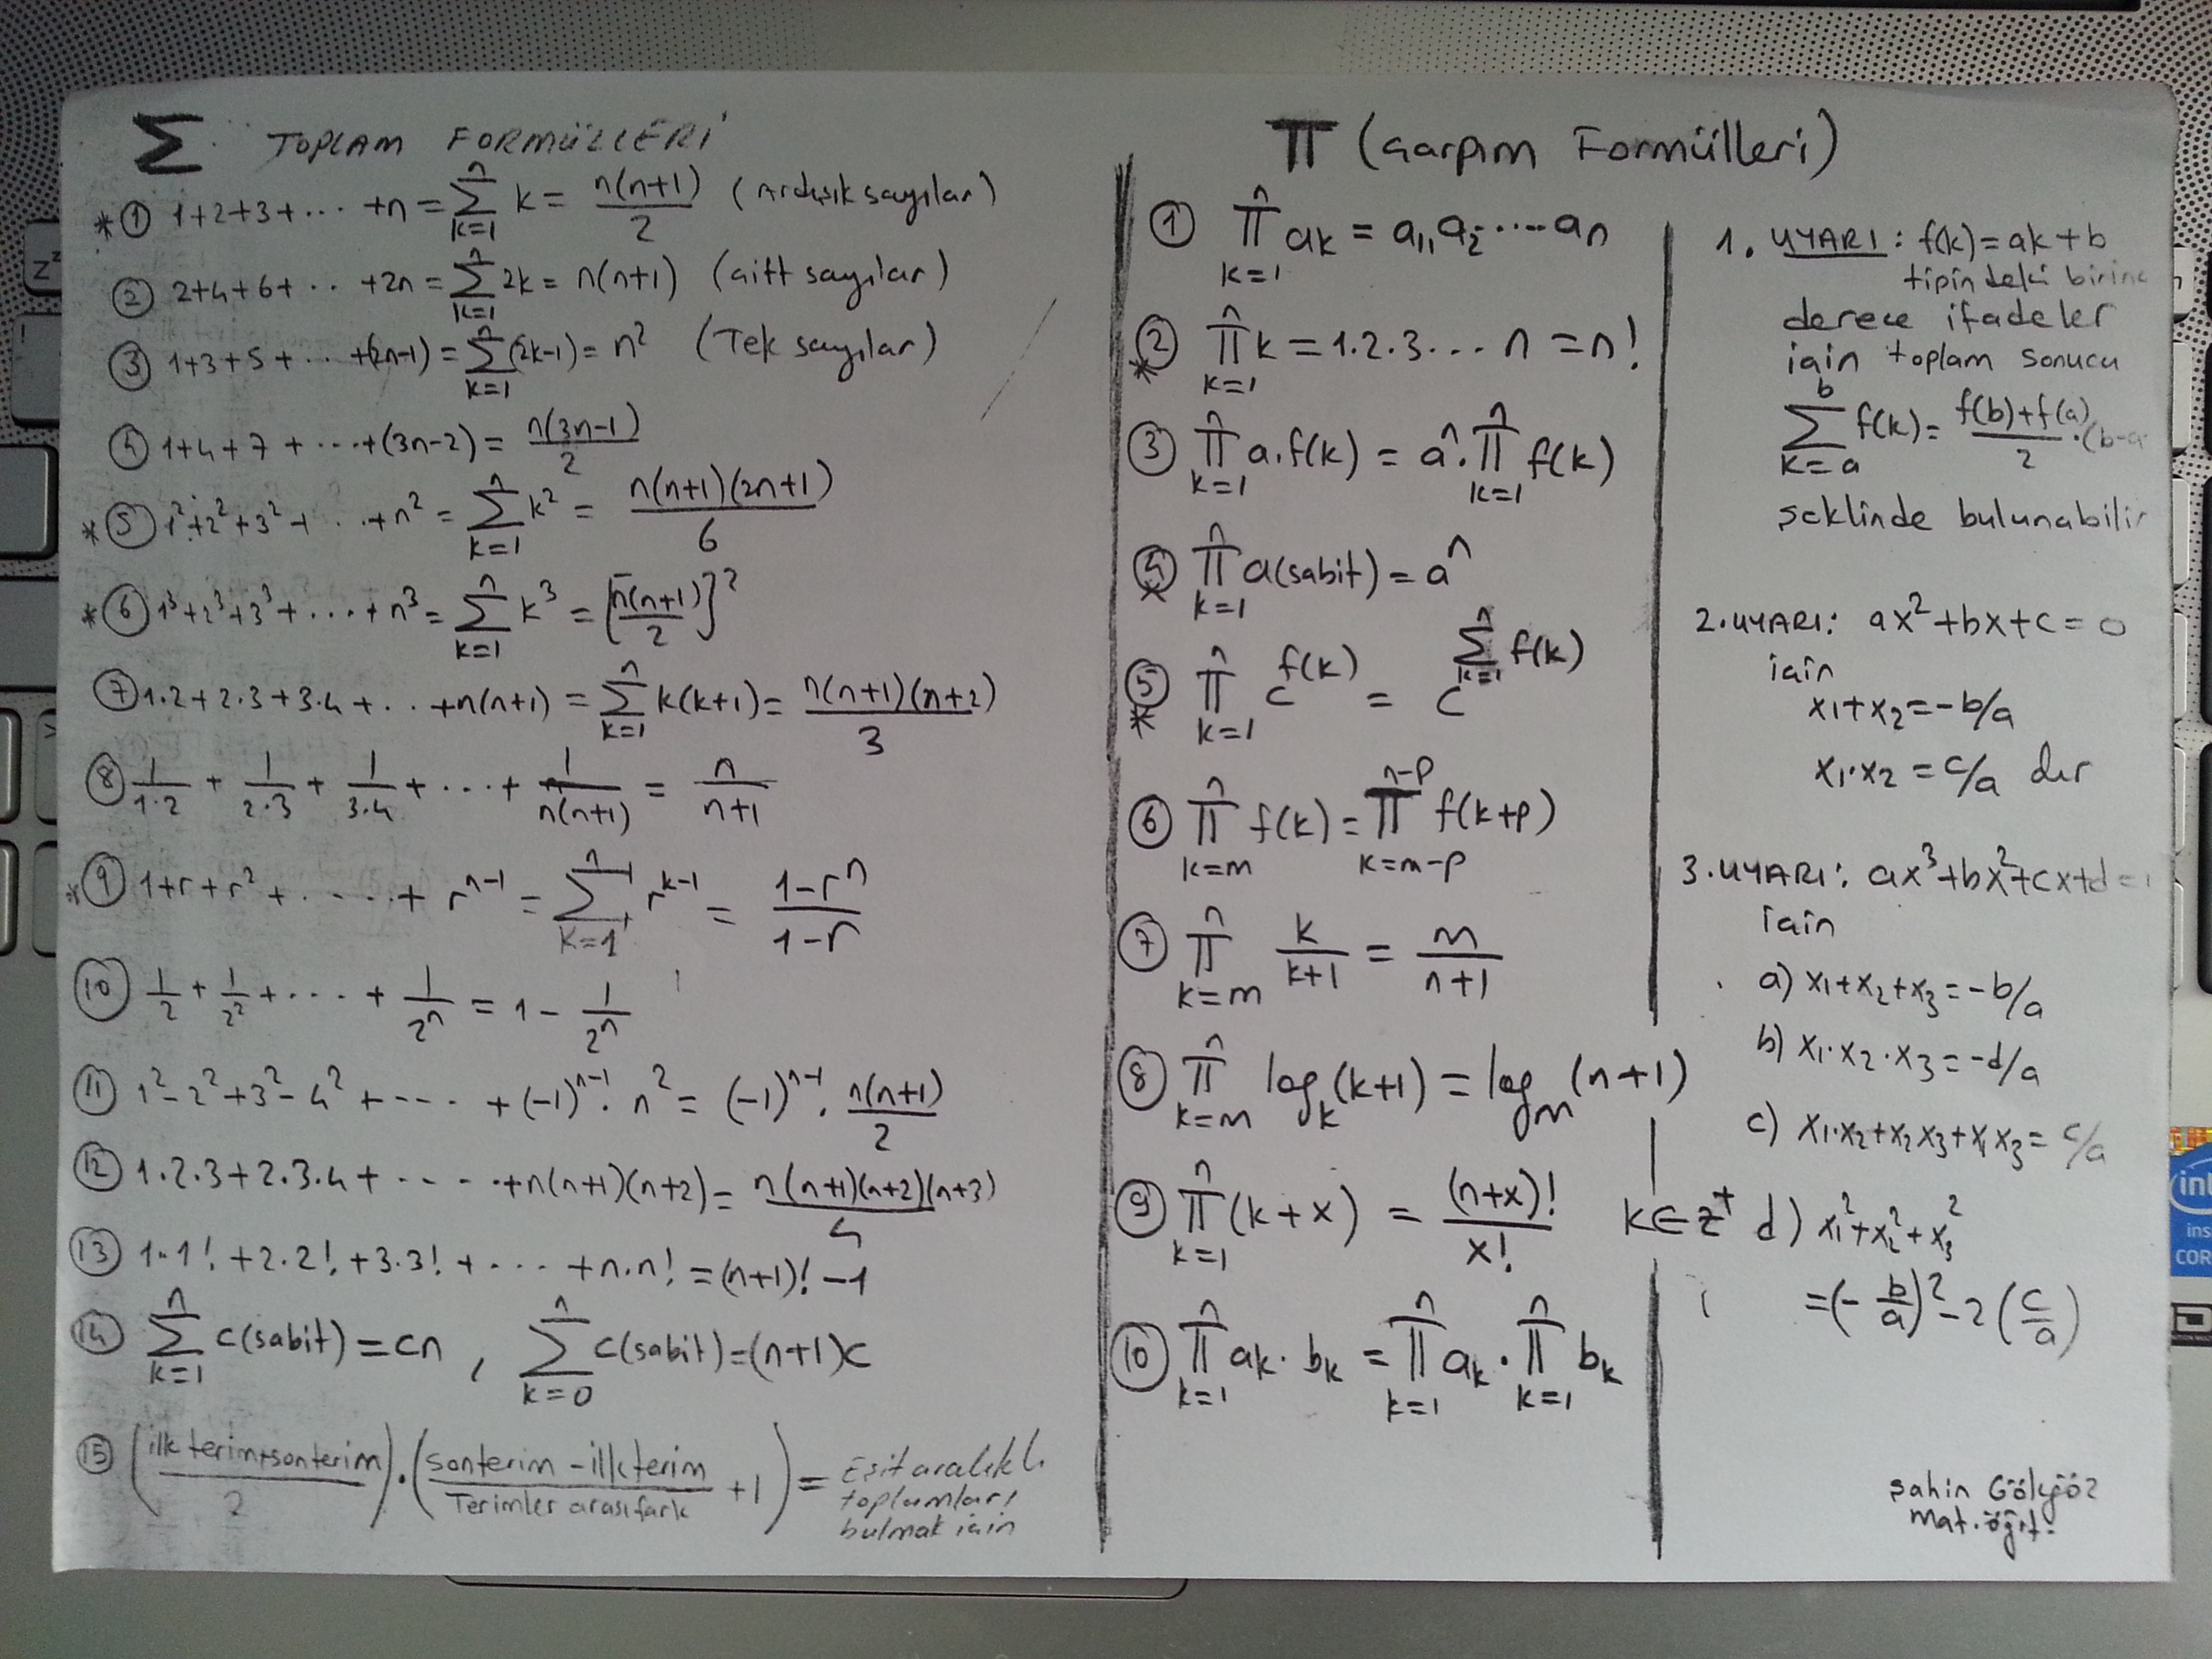 Σ TOPLAM FORMÜLLERİ
*① 1+2+3+... +n = Σ_{k=1}^{n} k = n(n+1)/2 (Ardışık sayılar)
② 2+4+6+.. +2n = Σ_{k=1}^{n} 2k = n(n+1) (çift sayılar)
③ 1+3+5+... +(2n-1) = Σ_{k=1}^{n} (2k-1) = n² (Tek sayılar)
④ 1+4+7+...+(3n-2) = n(3n-1)/2
*⑤ 1²+2²+3²+...+n² = Σ_{k=1}^{n} k² = n(n+1)(2n+1)/6
*⑥ 1³+2³+3³+....+n³ = Σ_{k=1}^{n} k³ = [n(n+1)/2]²
⑦ 1·2+2·3+3·4+.. +n(n+1) = Σ_{k=1}^{n} k(k+1) = n(n+1)(n+2)/3
⑧ 1/1·2 + 1/2·3 + 1/3·4 + ... + 1/n(n+1) = n/n+1
*⑨ 1+r+r²+.....+ r^{n-1} = Σ_{k=1}^{n} r^{k-1} = 1-r^n/1-r
⑩ 1/2 + 1/2² + .... + 1/2^n = 1 - 1/2^n
⑪ 1²-2²+3²-4²+---- +(-1)^{n-1}· n² = (-1)^{n-1}· n(n+1)/2
⑫ 1·2·3+2·3·4+ ---- +n(n+1)(n+2) = n(n+1)(n+2)(n+3)/4
⑬ 1·1!+2·2!+3·3!+.... +n·n! = (n+1)! -1
⑭ Σ_{k=1}^{n} c(sabit) = cn , Σ_{k=0}^{n} c(sabit) = (n+1)c
⑮ (ilk terim+son terim/2)·(sonterim - ilk terim/Terimler arası fark +1) = Eşit aralıklı
toplamları
bulmak için
Π (Çarpım Formülleri)
① Π_{k=1}^{n} ak = a₁, a₂ ..... an
②* Π_{k=1}^{n} k = 1.2.3... n = n!
③ Π_{k=1}^{n} a.f(k) = a^n. Π_{k=1}^{n} f(k)
④* Π_{k=1}^{n} a(sabit) = a^n
⑤* Π_{k=1}^{n} c^{f(k)} = c^{Σ_{k=1}^{n} f(k)}
⑥ Π_{k=m}^{n} f(k) = Π_{k=m-p}^{n-p} f(k+p)
⑦ Π_{k=m}^{n} k/k+1 = m/n+1
⑧ Π_{k=m}^{n} log_k(k+1) = log_m(n+1)
⑨ Π_{k=1}^{n} (k+x) = (n+x)!/x! k∈Z⁺
⑩ Π_{k=1}^{n} ak· bk = Π_{k=1}^{n} ak · Π_{k=1}^{n} bk
1. UYARI: f(k)=ak+b
tipindeki birinc
derece ifadeler
için toplam sonucu
Σ_{k=a}^{b} f(k) = f(b)+f(a)/2 ·(b-a
şeklinde bulunabilir
2.UYARI: ax²+bx+c=0
için
x₁+x₂=-b/a
x₁·x₂ = c/a dır
3.UYARI: ax³+bx²+cx+d=
için
a) x₁+x₂+x₃=-b/a
b) x₁·x₂·x₃=-d/a
c) x₁·x₂+x₂x₃+x₁x₃= c/a
d) x₁²+x₂²+x₃²
=(-b/a)²-2(c/a)
Şahin Gökgöz
mat.öğrt.
intel
ins
COR